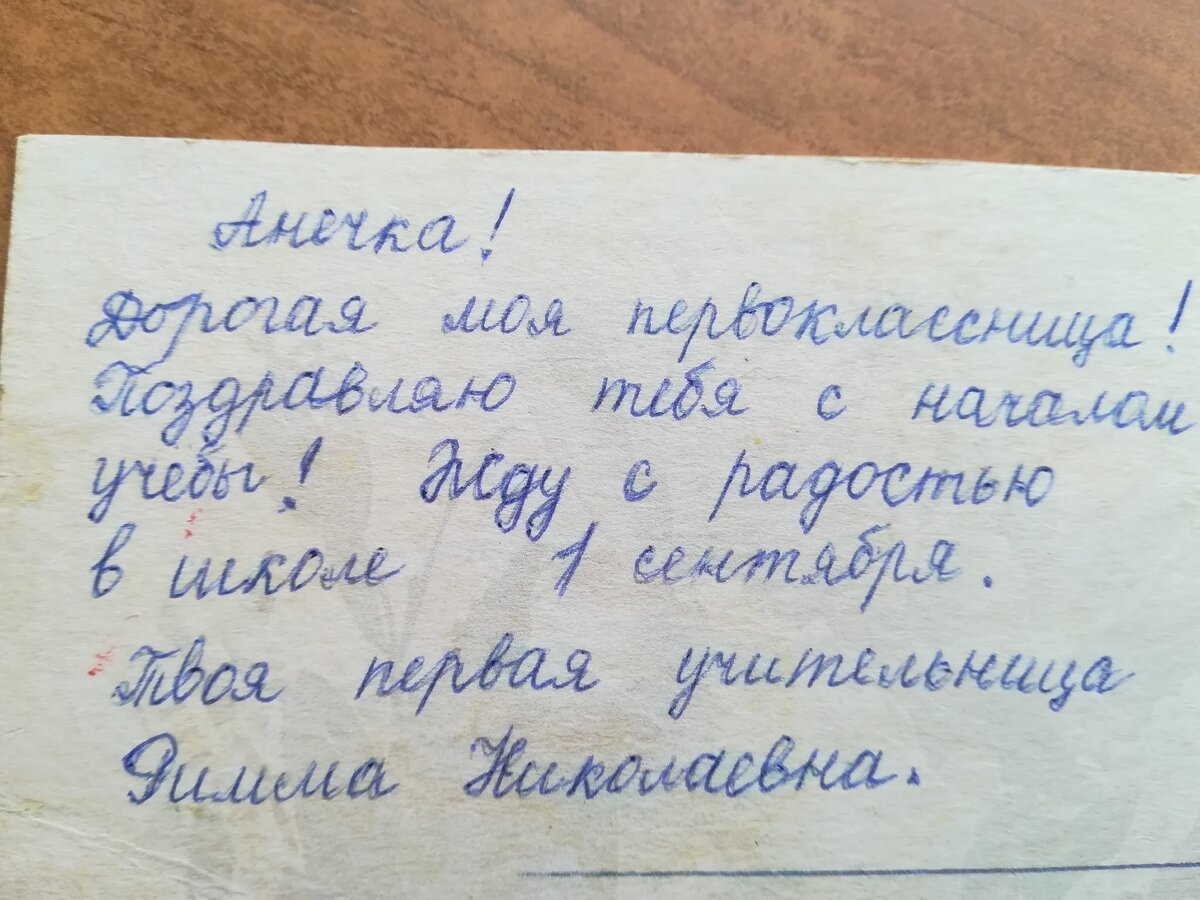 Анечка!
Дорогая моя первоклассница!
Поздравляю тебя с началом
учебы! Жду с радостью
в школе 1 сентября.
Твоя первая учительница
Римма Николаевна.